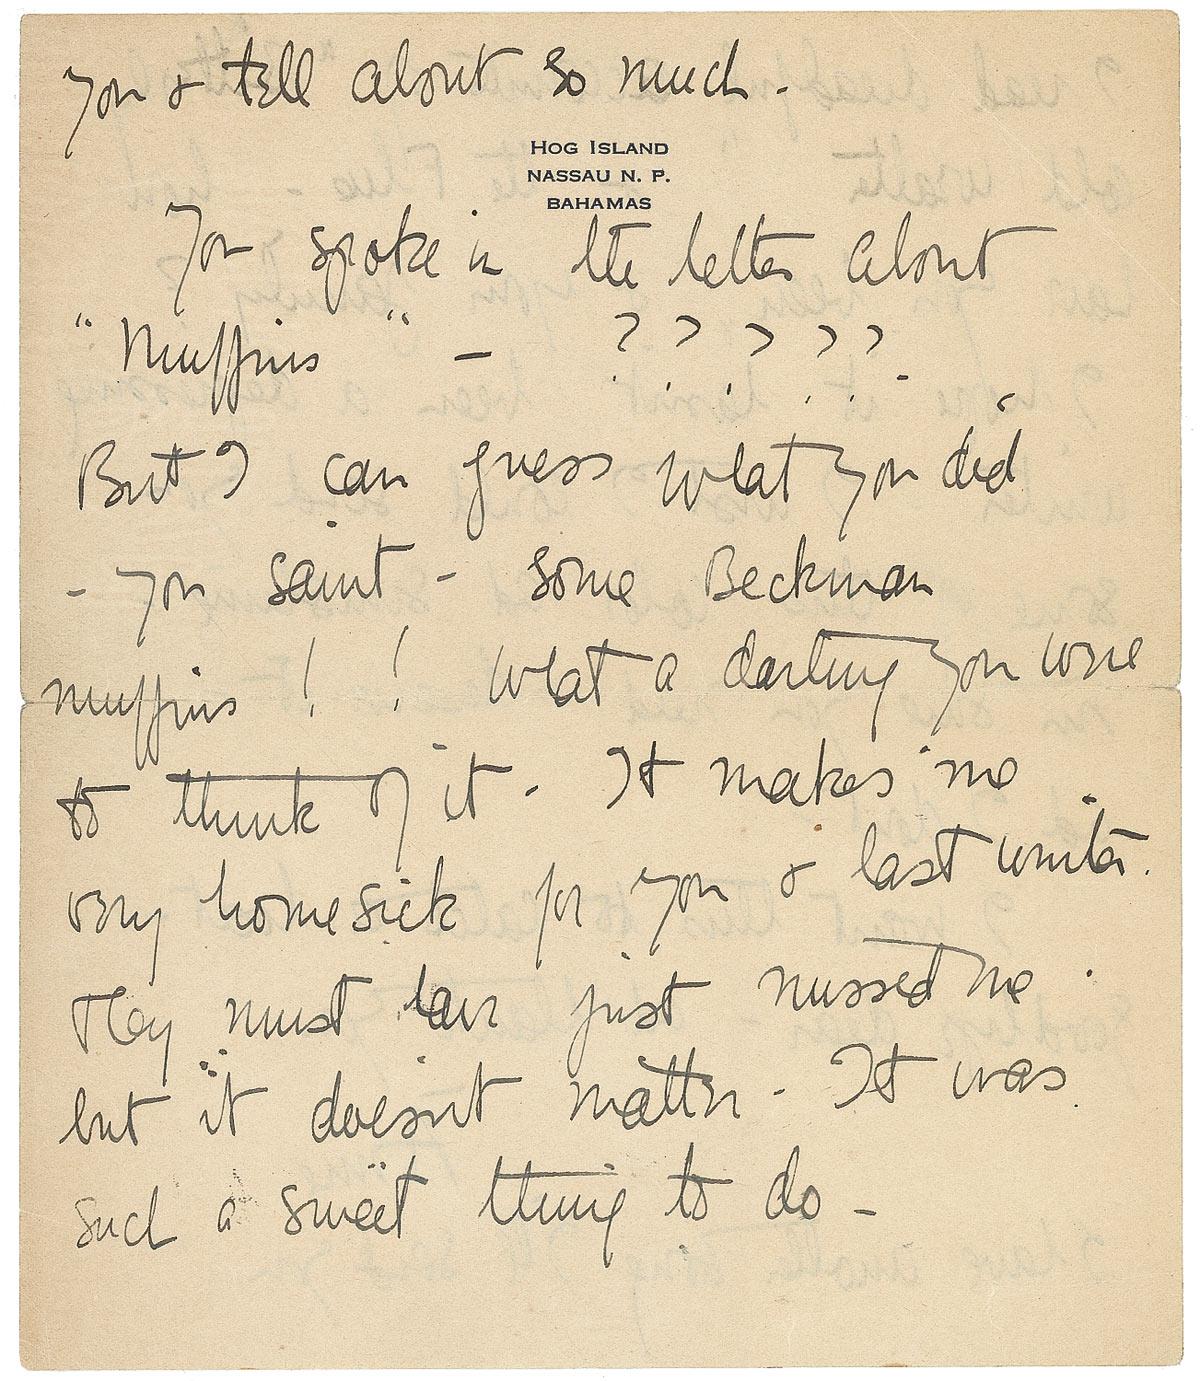 you & tell about so much -
HOG ISLAND
NASSAU N. P.
BAHAMAS
You spoke in the letter about
"Muffins" - ? ? ? ? ?
But I can guess what you did
- you saint - some Beekman
muffins ! ! What a darling you were
to think of it - It makes me
very homesick for you & last winter.
They must have just missed me
but it doesn't matter - It was
such a sweet thing to do -